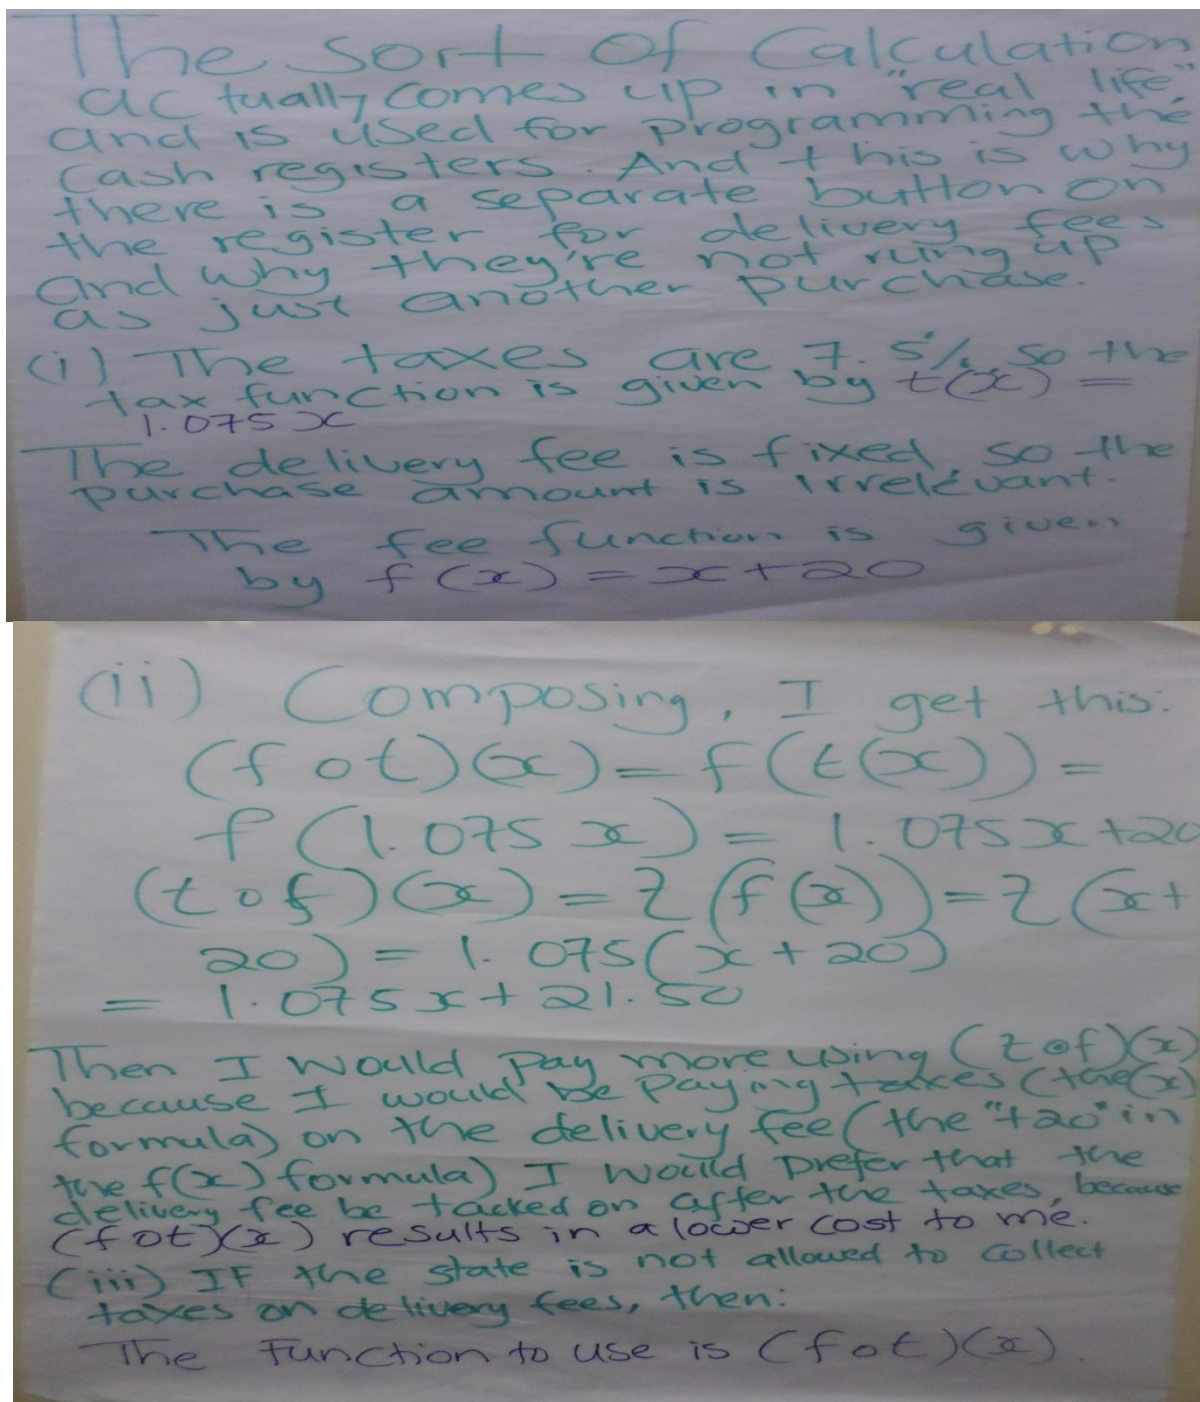 The sort of Calculation
actually comes up in "real life"
and is used for programming the
Cash registers. And this is why
there is a separate button on
the register for delivery fees
and why they're not rung up
as just another purchase.
(i) The taxes are 7.5% so the
tax function is given by t(x) =
1.075x
The delivery fee is fixed, so the
purchase amount is irrelevant.
The fee function is given
by f(x) = x+20
(ii) Composing, I get this:
(f o t)(x) = f(t(x)) =
f(1.075x) = 1.075x+20
(t o f)(x) = t(f(x)) = t(x+
20) = 1.075(x+20)
= 1.075x + 21.50
Then I would pay more using (t o f)(x)
because I would be paying taxes (the(x)
formula) on the delivery fee (the "+20" in
the f(x) formula) I would prefer that the
delivery fee be tacked on after the taxes, because
(f o t)(x) results in a lower cost to me.
(iii) IF the state is not allowed to collect
taxes on delivery fees, then:
The Function to use is (f o t)(x).